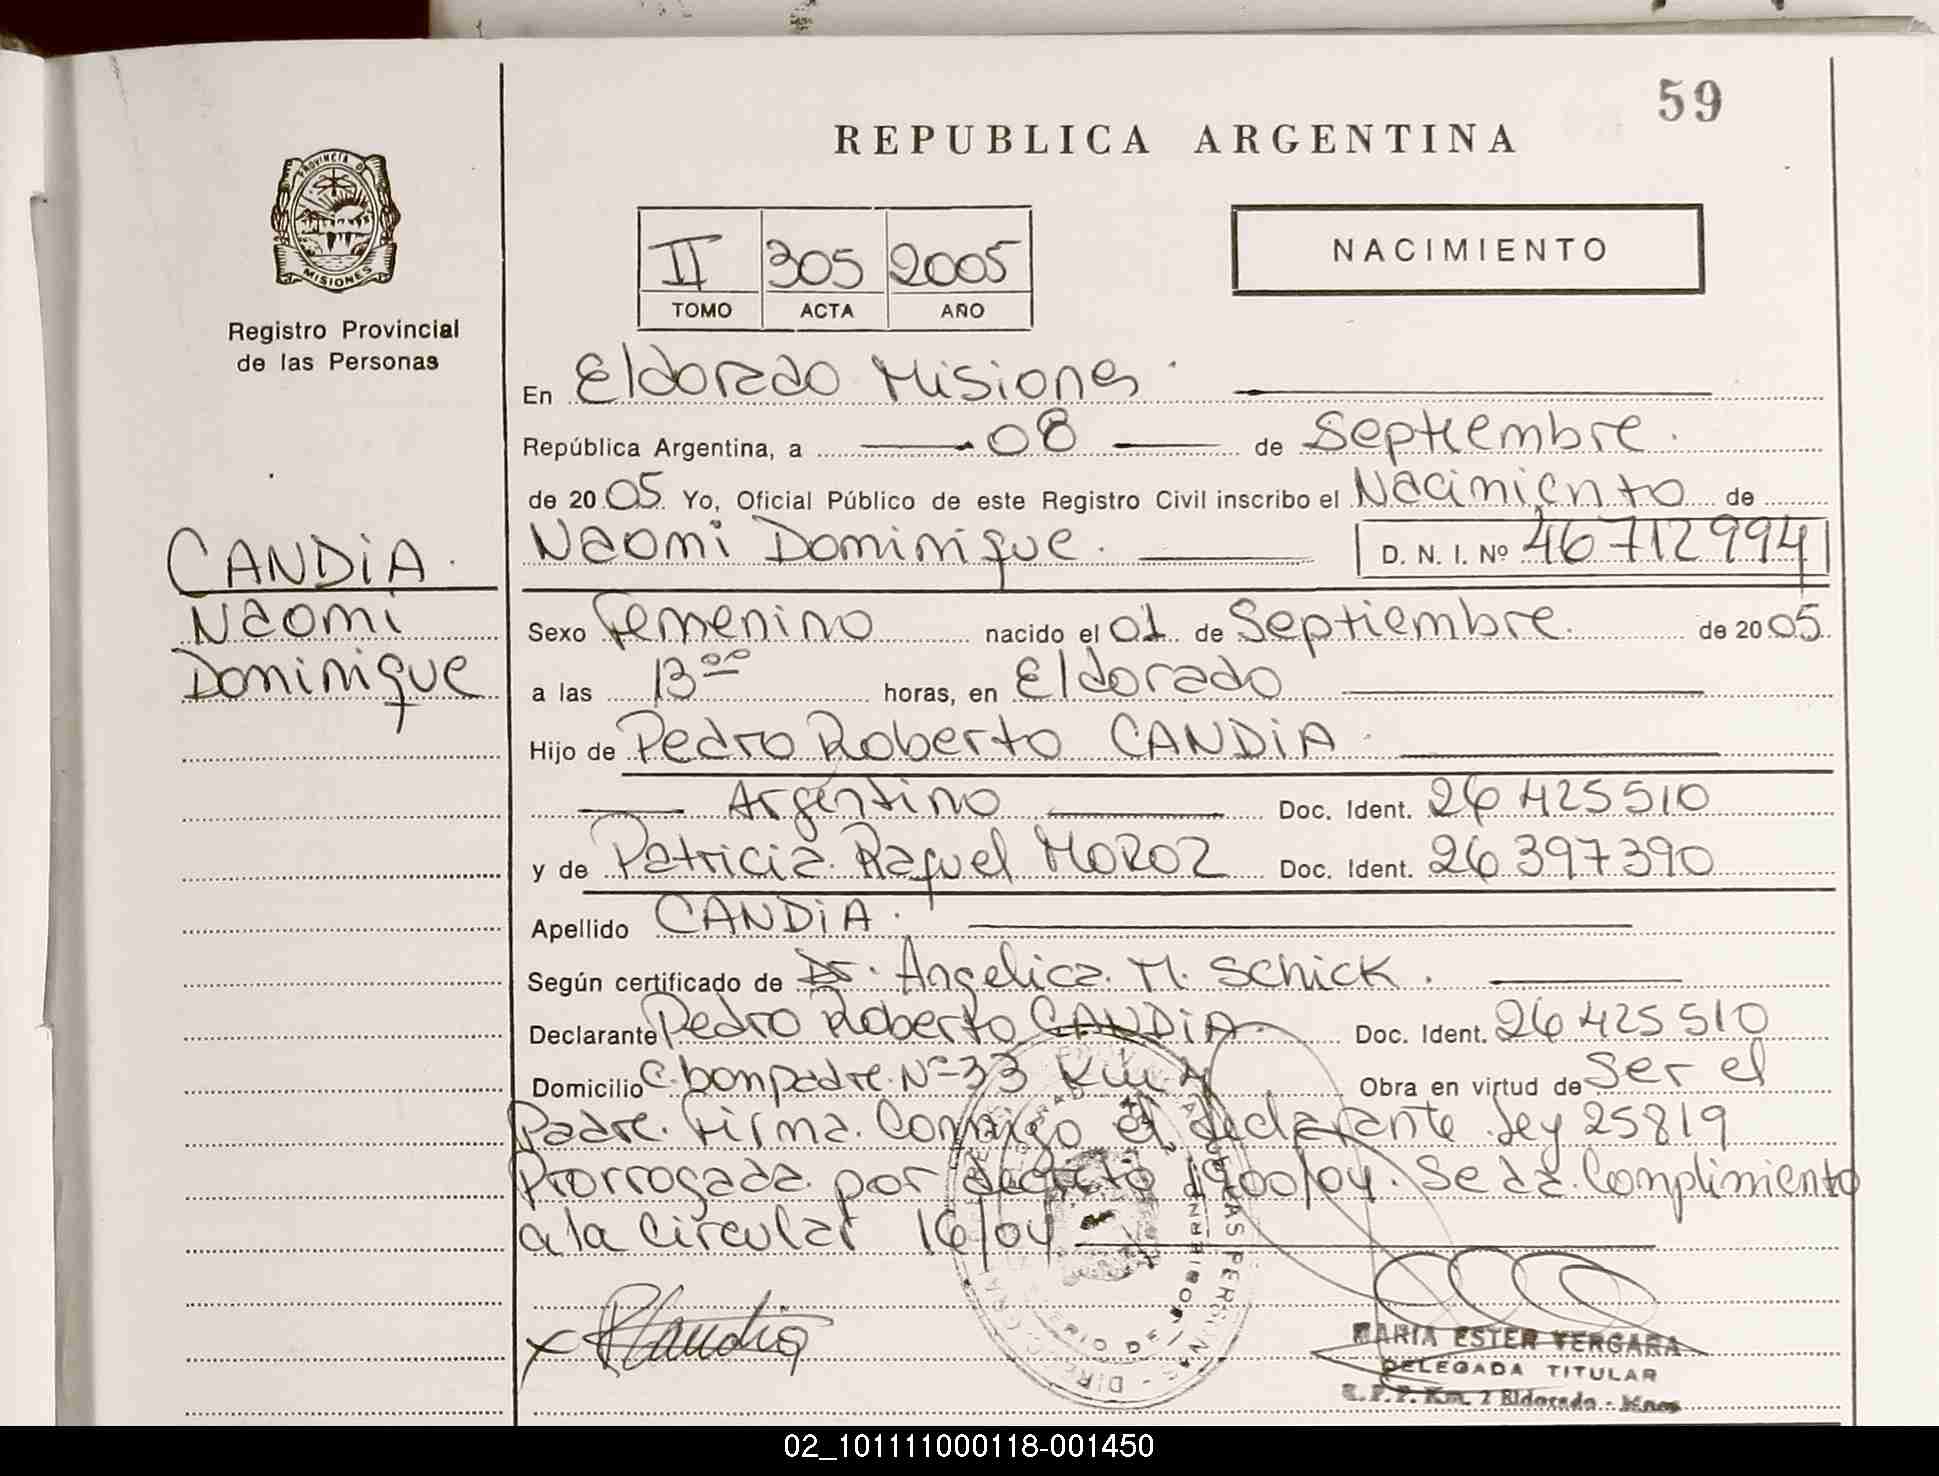 59
REPUBLICA ARGENTINA
PROVINCIA D
MISIONES
Registro Provincial
de las Personas
II 305 2005
TOMO ACTA AÑO
NACIMIENTO
En Eldorado Misiones.
República Argentina, a 08 de Septiembre.
de 2005 Yo, Oficial Público de este Registro Civil inscribo el Nacimiento de
Naomi Dominique. D. N. I. Nº 46712994
CANDIA.
Naomi
Dominique
Sexo Femenino nacido el 01 de Septiembre. de 2005
a las 13 00 horas, en Eldorado
Hijo de Pedro Roberto CANDIA.
Argentino Doc. Ident. 26 425510
y de Patricia Raquel MOROZ Doc. Ident. 26 397390
Apellido CANDIA.
Según certificado de Dr. Angelica. M. Schick.
Declarante Pedro Roberto CANDIA. Doc. Ident. 26 425510
Domicilio C. bompadre. Nº 33 Km 4 Obra en virtud de Ser el
Padre. Firma. Conmigo el declarante. Ley 25819
Prorrogada por decreto 1900/04. Se da Complimiento
a la Circular 16/04
x RCandia
MARIA ESTER VERGARA
DELEGADA TITULAR
R.P.P. Km. 2 Eldorado - Mnes
02_101111000118-001450